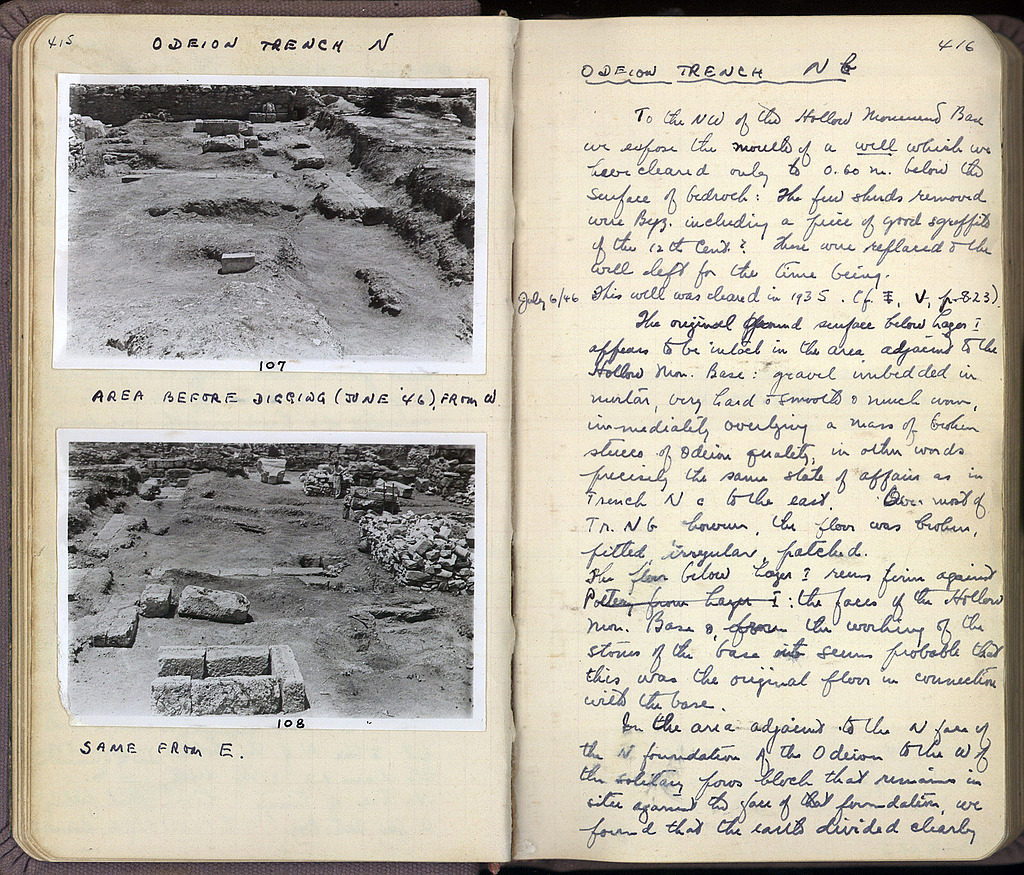 415
ODEION TRENCH N
107
AREA BEFORE DIGGING (JUNE '46), FROM W.
108
SAME FROM E.
416
ODEION TRENCH N b
To the NW of the Hollow Monument Base
we expose the mouth of a well which we
have cleared only to 0.60 m. below the
surface of bedrock: The few sherds removed
were Byz. including a piece of good sgraffito
of the 12th Cent. These were replaced & the
well left for the time being.
July 6/46 This well was cleared in 1935. (cf. V, p. 823).
The original ground surface below Layer I
appears to be intact in the area adjacent to the
Hollow Mon. Base: gravel imbedded in
mortar, very hard & smooth & much worn,
immediately overlying a mass of broken
stucco of Odeion quality, in other words
precisely the same state of affairs as in
Trench N c to the east. Over most of
Tr. N b however, the floor was broken,
pitted, irregular, patched.
The floor below Layer I runs firm against
Pottery from Layer I : the faces of the Hollow
Mon. Base & from the working of the
stones of the base it seems probable that
this was the original floor in connection
with the base.
In the area adjacent to the N face of
the N foundation of the Odeion to the W of
the solitary poros block that remains in
situ against the face of that foundation, we
found that the earth divided clearly